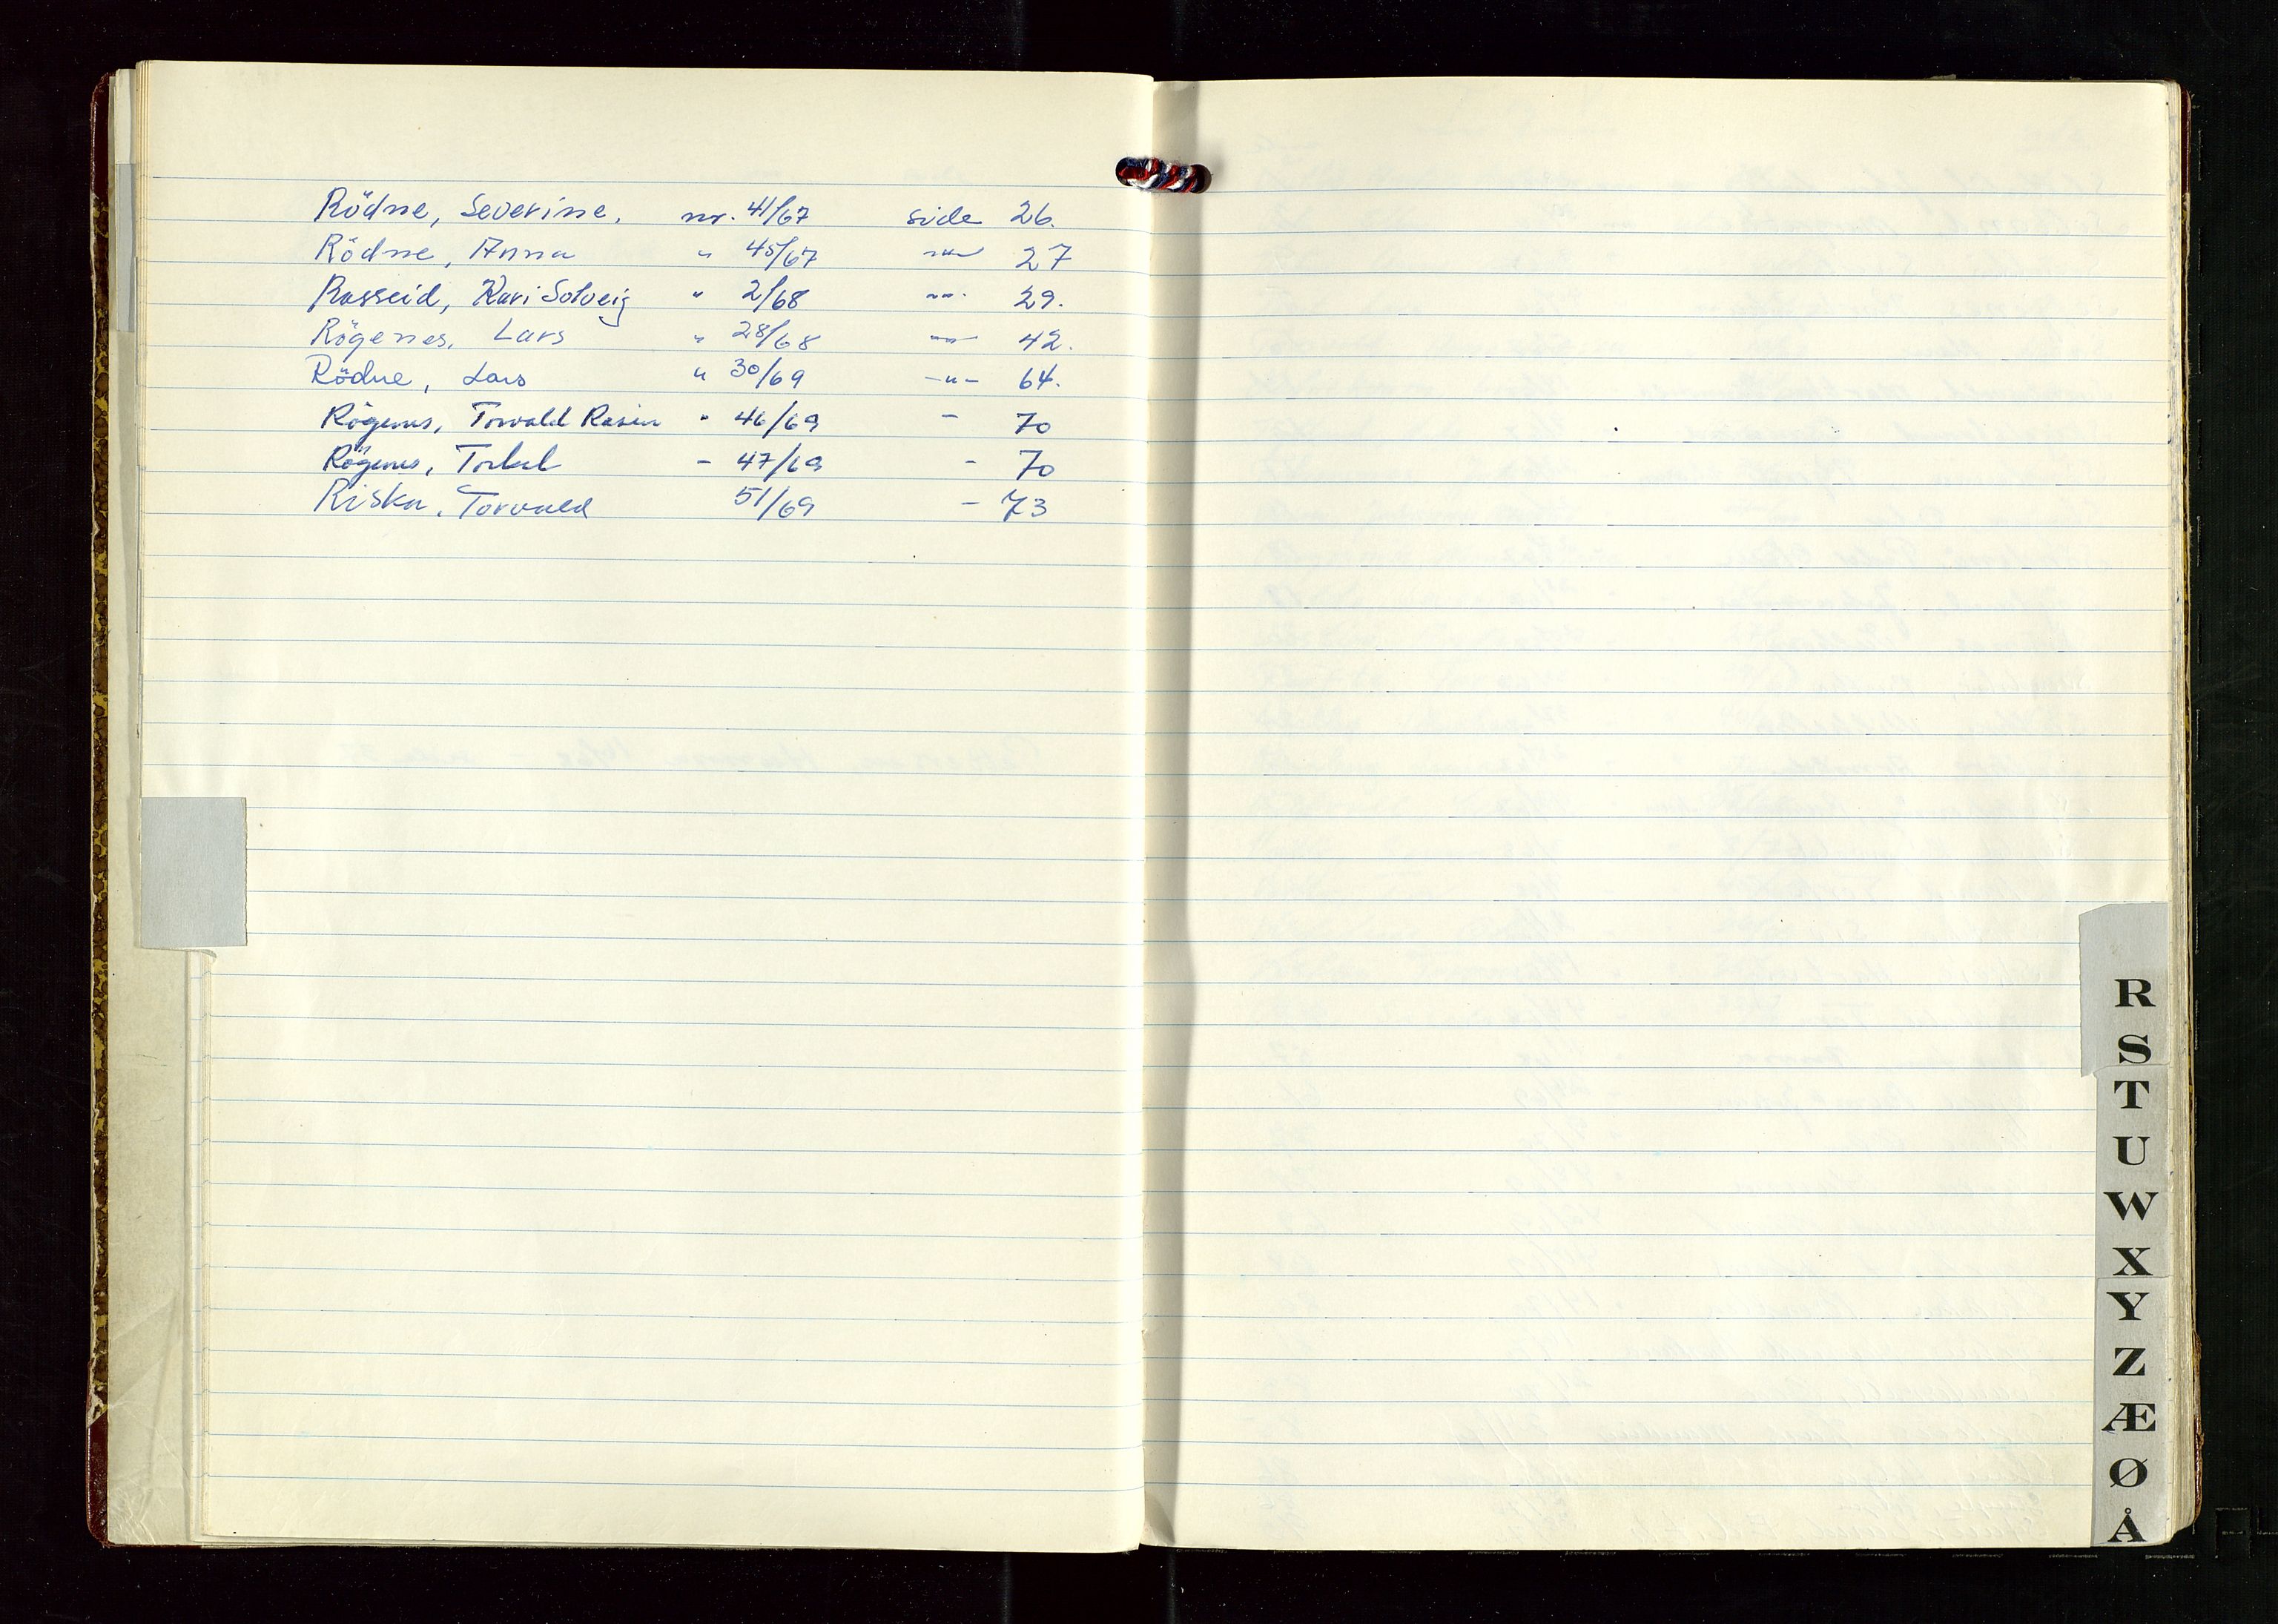 Rödne, Severine, nr. 41/67 side 26.
Rödne, Anna " 45/67 -"- 27
Rasseid, Kari Solveig " 2/68 -"- 29.
Rögenes, Lars " 28/68 -"- 42.
Rödne, Lars " 30/69 -"- 64.
Rögenes, Torvald Rasin " 46/69 - 70
Rögenes, Torkel - 47/69 - 70
Riska, Torvald 51/69 - 73
R
S
T
U
W
X
Y
Z
Æ
Ø
Å